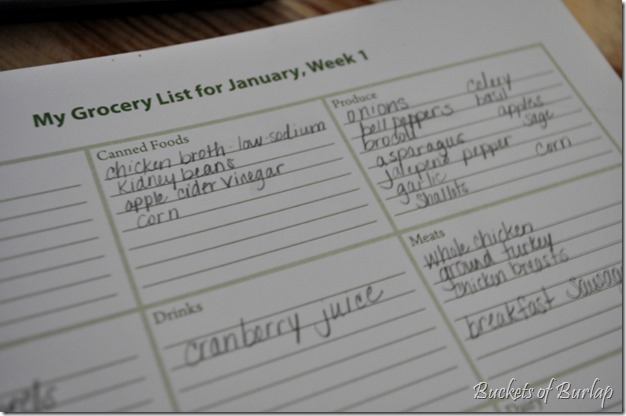 My Grocery List for January, Week 1
Canned Foods
chicken broth-low-sodium
kidney beans
apple cider vinegar
corn
Produce
onions celery
bell peppers basil
apples
asparagus sage
jalepeno pepper
garlic corn
shallots
Drinks
cranberry juice
Meats
whole chicken
ground turkey
chicken breasts
breakfast sausage
Buckets of Burlap